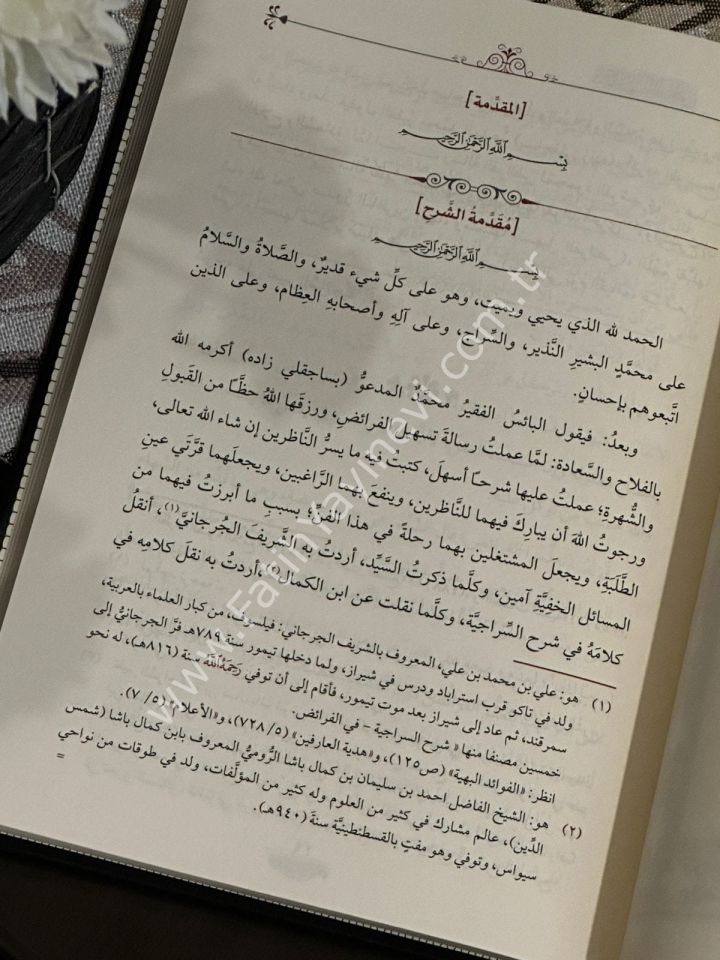 [المقدَّمة]
بِسْمِ اللَّهِ الرَّحْمَنِ الرَّحِيمِ
[مُقَدَّمةُ الشَّرحِ]
بِسْمِ اللَّهِ الرَّحْمَنِ الرَّحِيمِ
الحمد لله الذي يحيي ويميت، وهو على كلِّ شيء قديرٌ، والصَّلاةُ والسَّلامُ
على محمَّدٍ البشيرِ النَّذير، والسِّراج، وعلى آلِهِ وأصحابهِ العِظام، وعلى الذين
اتَّبعوهم بإحسانٍ.
وبعدُ: فيقول البائسُ الفقيرُ محمَّدٌ المدعوُّ (بساجقلي زاده) أكرمه الله
بالفلاح والسَّعادة: لمَّا عملتُ رسالةَ تسهيلِ الفرائضِ، ورزقَها اللهُ حظًّا من القَبولِ
والشُّهرةِ؛ عملتُ عليها شرحًا أسهلَ، كتبتُ فيه ما يسرُّ النَّاظرين إن شاء الله تعالى،
ورجوتُ اللهَ أن يباركَ فيهما للنَّاظرين، وينفعَ بهما الرَّاغبين، ويجعلَهما قرَّتَي عينِ
الطَّلَبَةِ، ويجعلَ المشتغلين بهما رحلةً في هذا الفنِّ؛ بسببِ ما أبرزتُ فيهما من
المسائل الخفِيَّةِ آمين، وكلَّما ذكرتُ السَّيِّد، أردتُ به الشَّريفَ الجُرجانيَّ(١)، أنقلُ
كلامَهُ في شرح السِّراجيَّة، وكلَّما نقلت عن ابن الكمال(٢)،أردتُ به نقلَ كلامِه في
(١) هو: علي بن محمد بن علي، المعروف بالشريف الجرجاني: فيلسوف، من كبار العلماء بالعربية،
ولد في تاكو قرب استراباد ودرس في شيراز، ولما دخلها تيمور سنة ٧٨٩هـ فرَّ الجرجانيُّ إلى
سمرقند، ثم عاد إلى شيراز بعد موت تيمور، فأقام إلى أن توفي رَحِمَهُ اللَّهُ سنة (٨١٦هـ)، له نحو
خمسين مصنفا منها « شرح السراجية – في الفرائض.
انظر: «الفوائد البهية» (ص١٢٥)، و«هدية العارفين» (٥/ ٧٢٨)، و«الأعلام» (٥/ ٧).
(٢) هو: الشيخ الفاضل احمد بن سليمان بن كمال باشا الرُّوميُّ المعروف بابن كمال باشا (شمس
الدِّين)، عالم مشارك في كثير من العلوم وله كثير من المؤلَّفات، ولد في طوقات من نواحي
سيواس، وتوفي وهو مفتٍ بالقسطنطينيَّة سنةَ (٩٤٠هـ).
=
www.FatihYayinevi.com.tr